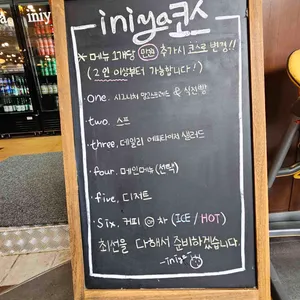 iniya코스
* 메뉴 1개당 추가시 코스로 변경!!
(2인 이상부터 가능합니다!)
one. & 식전빵
two. 스프
three. 데일리 에피타이저 샐러드
four. 메인메뉴 (선택)
five. 디저트
six. 커피 or 차 (ICE / HOT)
최선을 다해서 준비하겠습니다.
-iniya